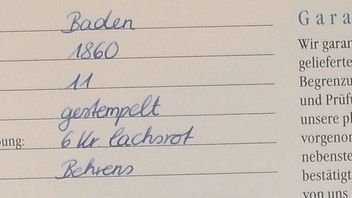 Baden
1860
11
gestempelt
ung: 6 Kr. lachsrot
Behrens
Gara
Wir garan
gelieferte
Begrenzu
und Prüf
unsere pl
vorgenom
nebenste
bestätigt
von uns